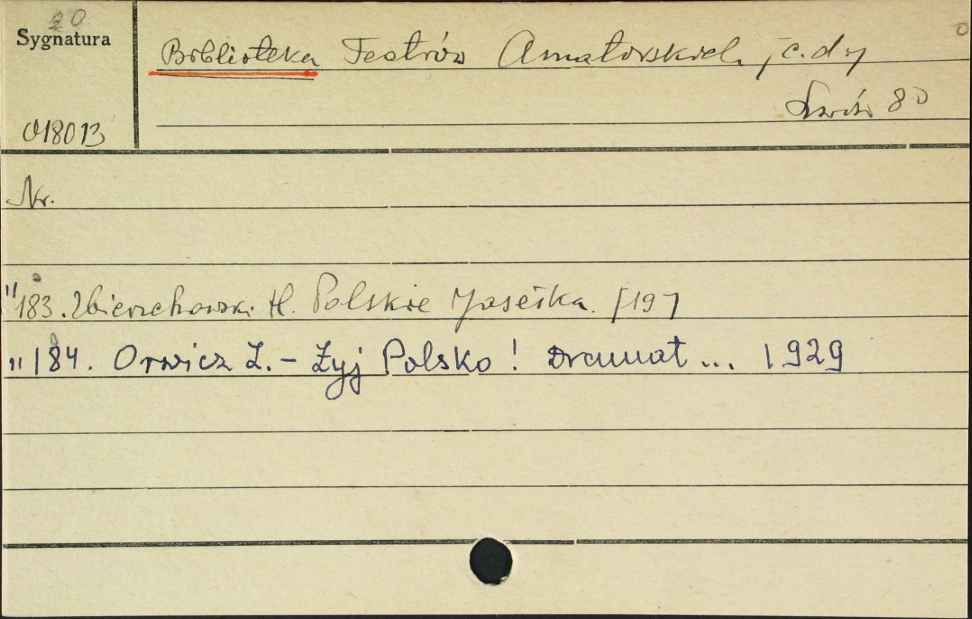 20
Sygnatura
Biblioteka Teatrów Amatorskich /c.d./
Lwów 8°
018013
Nr.
"183. Zbierzchowski H. Polskie Jasełka. [19]
" 184. Orwicz L. – Żyj Polsko! Dramat... 1929